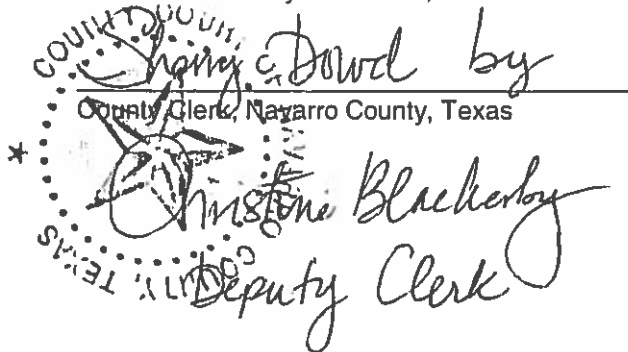 Sherry Dowd by
County Clerk, Navarro County, Texas
Christine Blackerby
Deputy Clerk
COUNTY COURT
COUNTY, TEXAS